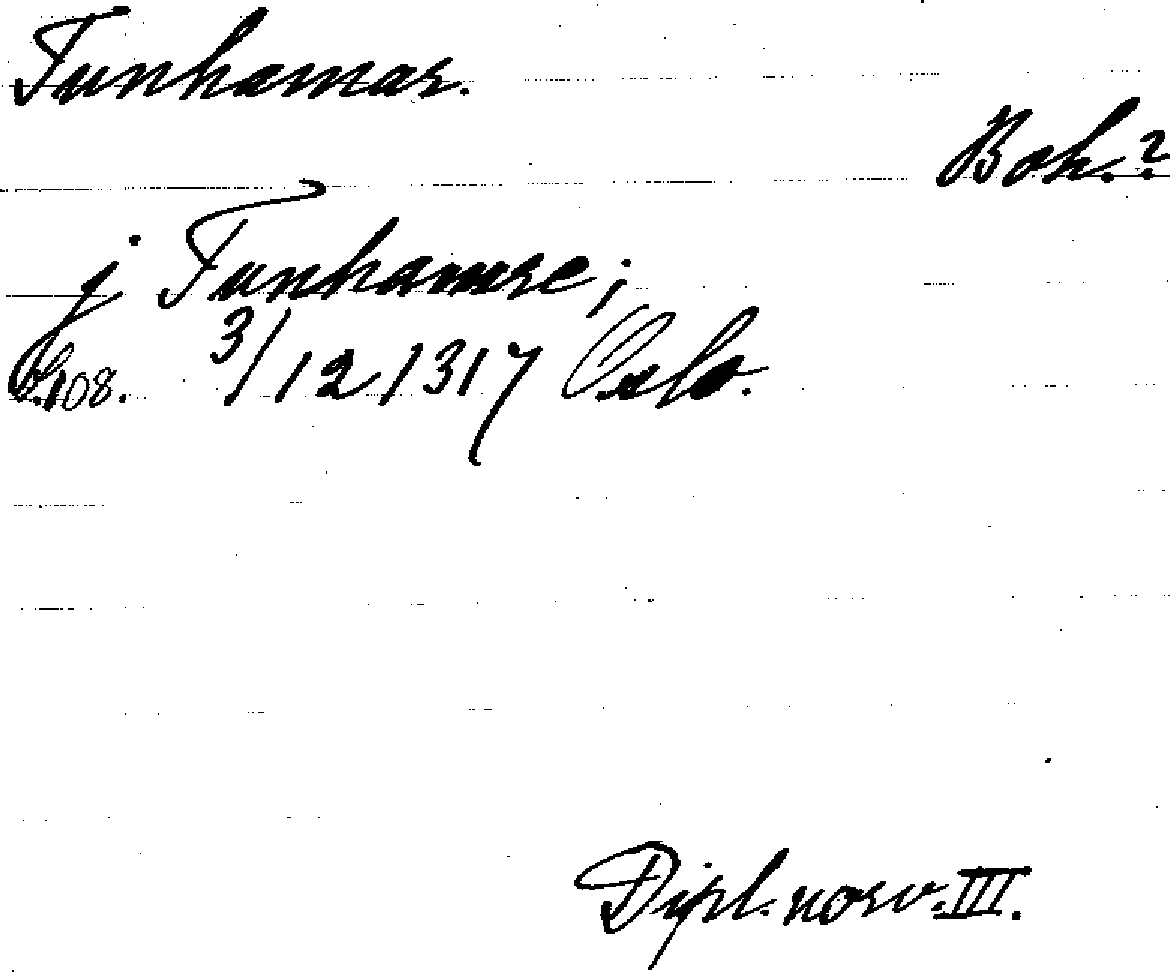 Tunhamar.
Boh.?
j Tunhamre;
S. 108. 3/12 1317 Oslo.
Dipl. norv. III.